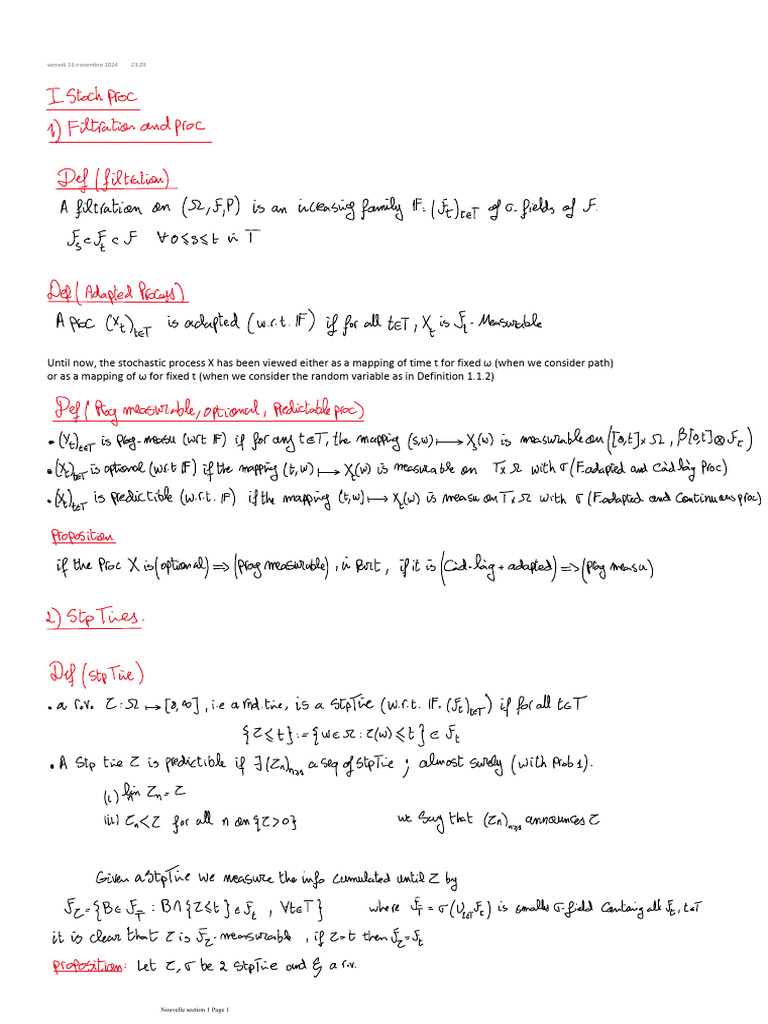 samedi 16 novembre 2024 23:29
I Stoch proc
1) Filtration and proc
Def (filtration)
A filtration on (Ω, F, P) is an increasing family 𝔽 = (F_t)_{t∈T} of σ-fields of F.
F_s ⊂ F_t ⊂ F ∀ 0 ≤ s ≤ t in T
Def (Adapted Process)
A proc (X_t)_{t∈T} is adapted (w.r.t. 𝔽) if for all t∈T, X_t is F_t-Measurable
Until now, the stochastic process X has been viewed either as a mapping of time t for fixed ω (when we consider path)
or as a mapping of ω for fixed t (when we consider the random variable as in Definition 1.1.2)
Def (Prog measurable, optional, Predictable proc)
• (X_t)_{t∈T} is prog-measu (wrt 𝔽) if for any t∈T, the mapping (s,w) ⟼ X_s(w) is measurable on ([0,t]×Ω, β[0,t]⊗F_t)
• (X_t)_{t∈T} is optional (w.r.t 𝔽) if the mapping (t,w) ⟼ X_t(w) is measurable on T×Ω with σ(F.adapted and Càd-làg Proc)
• (X_t)_{t∈T} is predictible (w.r.t. 𝔽) if the mapping (t,w) ⟼ X_t(w) is measu on T×Ω with σ(F.adapted and Continuous proc)
Proposition
if the Proc X is (optional) ⟹ (Prog measurable), in Part, if it is (Càd-làg + adapted) ⟹ (Prog measu)
2) Stp Times.
Def (stp Time)
• a r.v. τ : Ω ⟼ [0,∞], i.e a rnd.time, is a StpTime (w.r.t. 𝔽 = (F_t)_{t∈T}) if for all t∈T
{τ ≤ t} := {w∈Ω : τ(w) ≤ t} ∈ F_t
• A Stp time τ is predictible if ∃ (τ_n)_{n≥1} a seq of StpTime ; almost surely (with Prob 1).
(i) lim_n τ_n = τ
(ii) τ_n < τ for all n on {τ > 0} we say that (τ_n)_{n≥1} announces τ
Given a StpTime we measure the info cumulated until τ by
F_τ = {B ∈ F_T : B ∩ {τ ≤ t} ∈ F_t , ∀t∈T} where F_T = σ(∪_{t∈T} F_t) is smallest σ-field Containing all F_t, t∈T
it is clear that τ is F_τ-measurable , if τ = t then F_τ = F_t
proposition: Let τ, σ be 2 StpTime and ξ a r.v.
Nouvelle section 1 Page 1